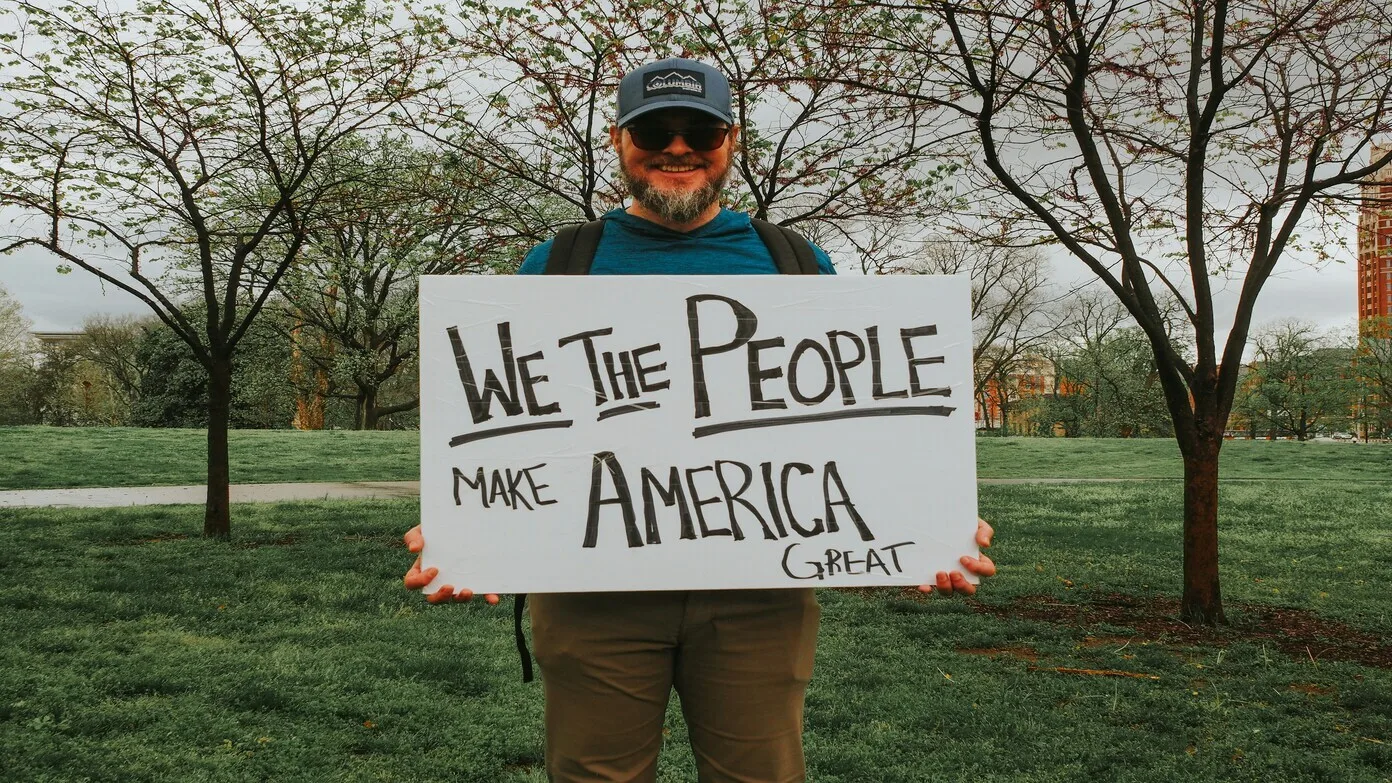 Columbia
WE THE PEOPLE
MAKE AMERICA
GREAT